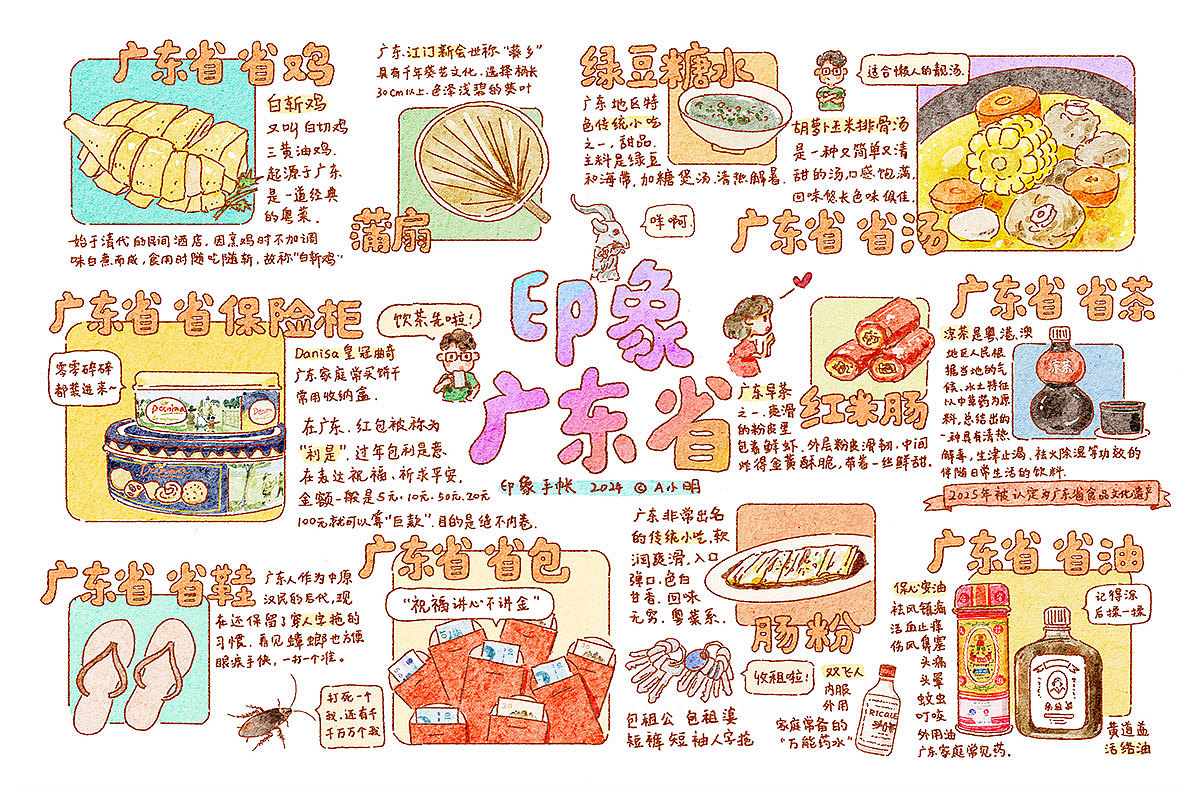 广东省省鸡
白斩鸡
又叫白切鸡
三黄油鸡.
起源于广东
是一道经典
的粤菜.
始于清代的民间酒店,因烹鸡时不加调
味白煮而成,食用时随吃随斩,故称“白斩鸡”
广东.江门新会世称“葵乡”
具有千年葵艺文化,选择柄长
30cm以上.色泽浅碧的葵叶
蒲扇
绿豆糖水
广东地区特
色传统小吃
之一,甜品.
主料是绿豆
和海带,加糖煲汤.清热解暑.
适合懒人的靓汤.
胡萝卜玉米排骨汤
是一种又简单又清
甜的汤,口感饱满,
回味悠长色味俱佳.
广东省省汤
咩啊.
印象
广东省
印象手帐 2024 © A小明
广东省省保险柜
零零碎碎
都装进来~
Danisa皇冠曲奇
广东家庭常买饼干
常用收纳盖.
饮茶先啦!
在广东.红包被称为
“利是”,过年包利是意
在表达祝福、祈求平安,
金额一般是5元,10元,50元,20元
100元就可以算“巨款”.目的是绝不内卷.
广东早茶
之一,爽滑
的粉皮里
包着鲜虾.外层粉爽滑韧,中间
炸得金黄酥脆,带着一丝鲜甜.
红米肠
广东省省茶
凉茶是粤、港、澳
地区人民根
据当地的气
候、水土特征
以中草药为原
料,总结出的
一种具有清热
解毒,生津止渴、祛火除湿等功效的
伴随日常生活的饮料.
凉茶
2025年被认定为广东省食品文化遗产
广东省省鞋
广东人作为中原
汉民的后代,现
在还保留了穿人字拖的
习惯.看见蟑螂也方便
眼疾手快,一打一个准.
打死一个
我,还有千
千万万个我
广东省省包
“祝福讲心不讲金”
广东非常出名
的传统小吃,软
润爽滑,入口
弹口.色白
甘香.回味
无穷.粤菜系.
肠粉
收租啦!
包租公 包租婆
短裤短袖人字拖
双飞人
内服
外用
家庭常备的
“万能药水”
RICQLE
广东省省油
保心安油
祛风镇痛
活血止痒
伤风鼻塞
头痛
头晕
蚊虫
叮咬
外用油
广东家庭常见药.
记得涂
后揉一揉
黄道益
活络油